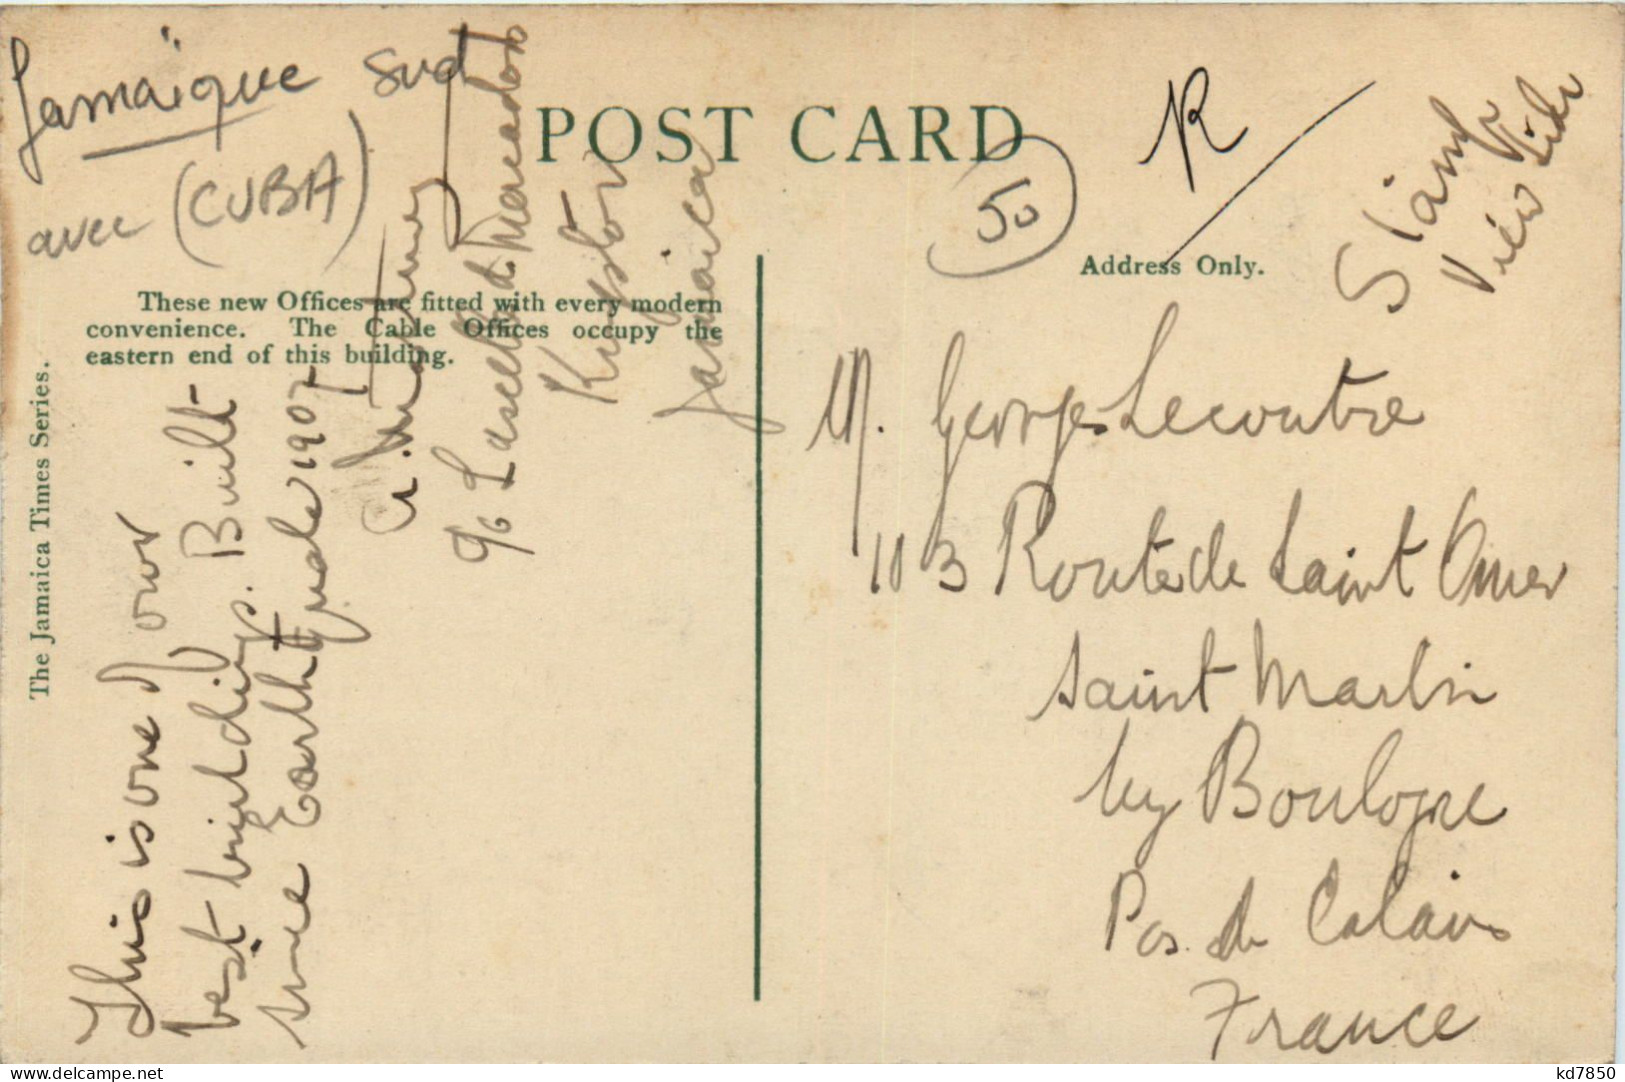 Jamaïque sud
avec (CUBA)
POST CARD
50
R
Stamp
View Side
Address Only.
These new Offices are fitted with every modern
convenience. The Cable Offices occupy the
eastern end of this building.
The Jamaica Times Series.
This is one of our
best buildings. Built
since Earthquake 1907
c/o Lascelles de Mercado
Kingston
Jamaica
M. Georges Lecoutre
103 Route de Saint Omer
Saint Martin
by Boulogne
Pas. de Calais
France
kd7850